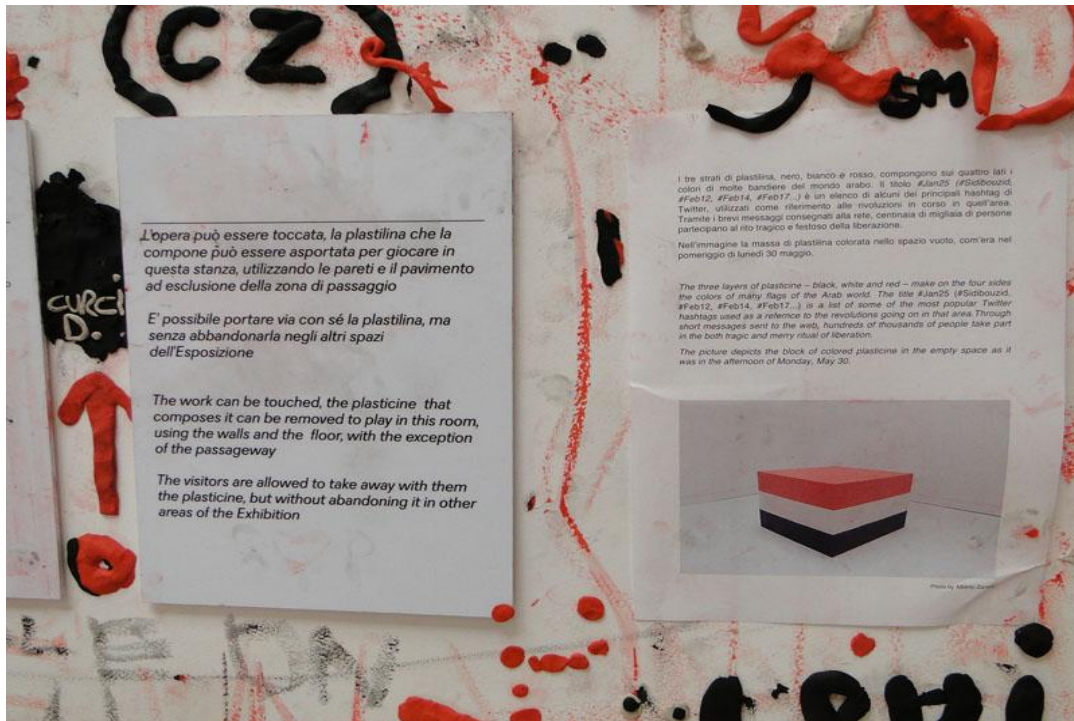 (CZ)
SM
CURCI
D.
L'opera può essere toccata, la plastilina che la
compone può essere asportata per giocare in
questa stanza, utilizzando le pareti e il pavimento
ad esclusione della zona di passaggio
E' possibile portare via con sé la plastilina, ma
senza abbandonarla negli altri spazi
dell'Esposizione
The work can be touched, the plasticine that
composes it can be removed to play in this room,
using the walls and the floor, with the exception
of the passageway
The visitors are allowed to take away with them
the plasticine, but without abandoning it in other
areas of the Exhibition
I tre strati di plastilina, nero, bianco e rosso, compongono sui quattro lati i
colori di molte bandiere del mondo arabo. Il titolo #Jan25 (#Sidibouzid,
#Feb12, #Feb14, #Feb17...) è un elenco di alcuni dei principali hashtag di
Twitter, utilizzati come riferimento alle rivoluzioni in corso in quell'area.
Tramite i brevi messaggi consegnati alla rete, centinaia di migliaia di persone
partecipano al rito tragico e festoso della liberazione.
Nell'immagine la massa di plastilina colorata nello spazio vuoto, com'era nel
pomeriggio di lunedì 30 maggio.
The three layers of plasticine – black, white and red – make on the four sides
the colors of many flags of the Arab world. The title #Jan25 (#Sidibouzid,
#Feb12, #Feb14, #Feb17...) is a list of some of the most popular Twitter
hashtags used as a refernce to the revolutions going on in that area. Through
short messages sent to the web, hundreds of thousands of people take part
in the both tragic and merry ritual of liberation.
The picture depicts the block of colored plasticine in the empty space as it
was in the afternoon of Monday, May 30.
Photo by